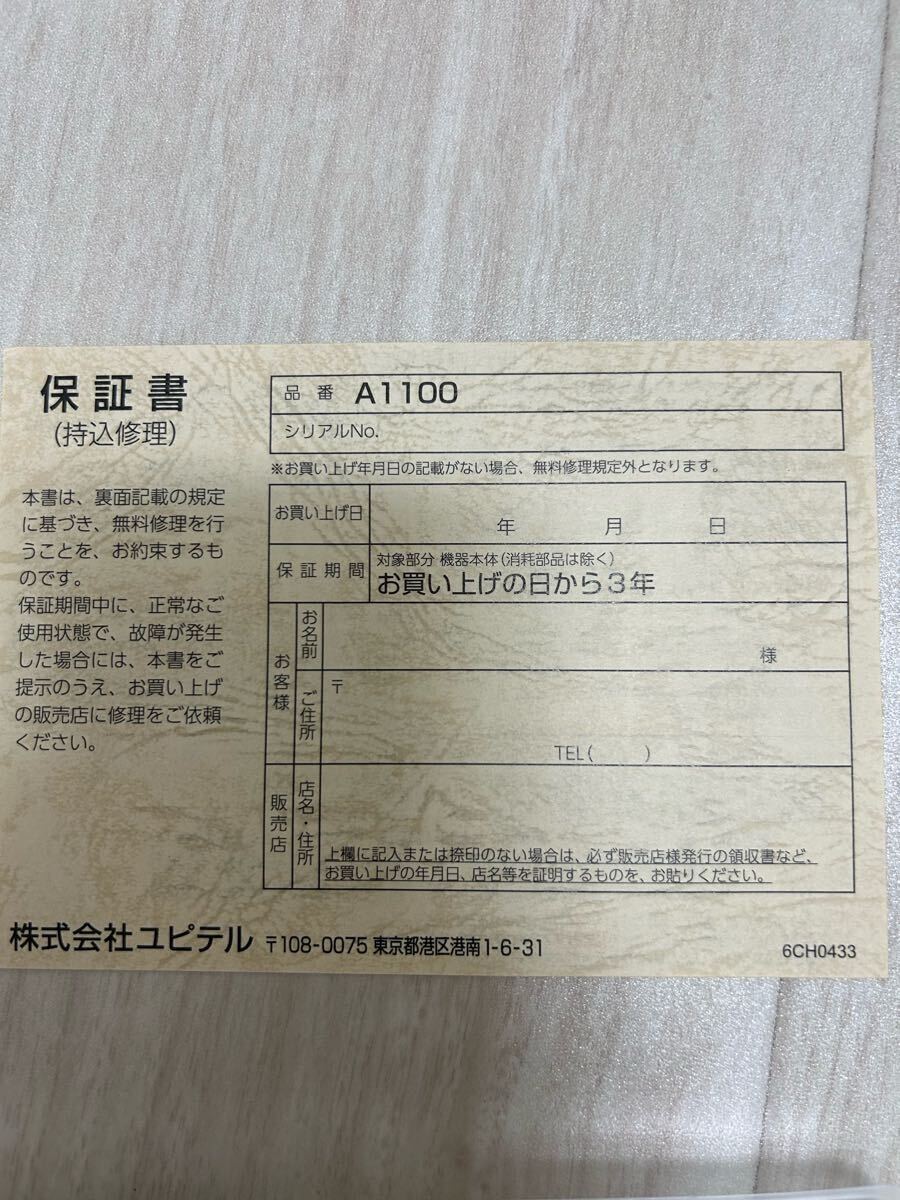 保証書
(持込修理)
本書は、裏面記載の規定
に基づき、無料修理を行
うことを、お約束するも
のです。
保証期間中に、正常なご
使用状態で、故障が発生
した場合には、本書をご
提示のうえ、お買い上げ
の販売店に修理をご依頼
ください。
品番 A1100
シリアルNo.
※お買い上げ年月日の記載がない場合、無料修理規定外となります。
お買い上げ日 年 月 日
保証期間 対象部分 機器本体(消耗部品は除く)
お買い上げの日から3年
お客様
お名前 様
ご住所 〒
TEL( )
販売店
店名・住所
上欄に記入または捺印のない場合は、必ず販売店様発行の領収書など、
お買い上げの年月日、店名等を証明するものを、お貼りください。
株式会社ユピテル 〒108-0075 東京都港区港南1-6-31
6CH0433